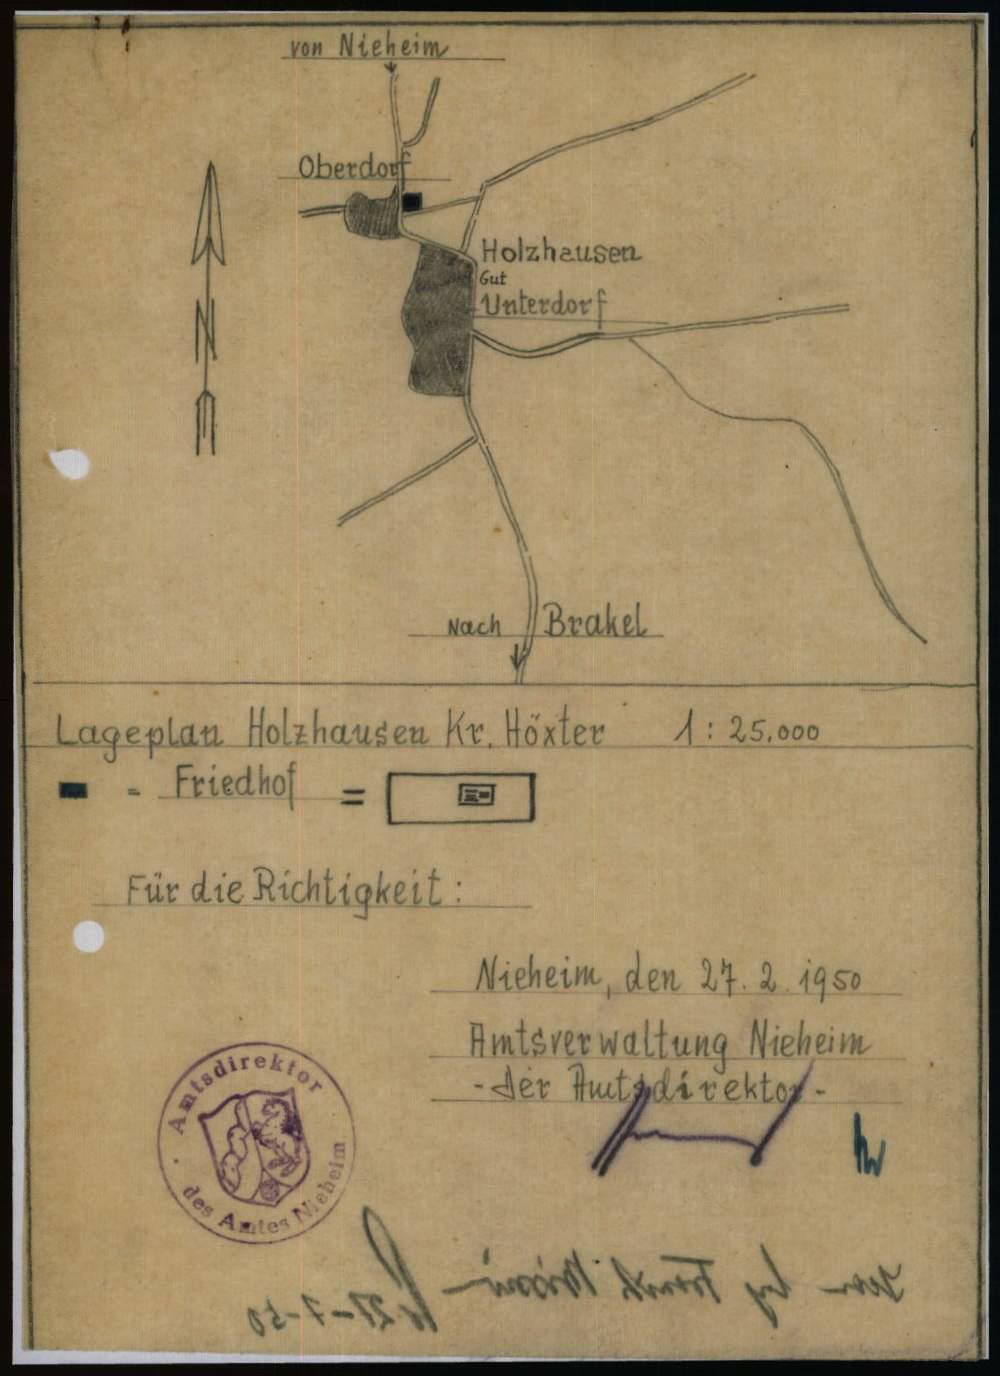 von Nieheim
Oberdorf
Holzhausen
Gut
Unterdorf
N
Nach Brakel
Lageplan Holzhausen Kr. Höxter 1:25.000
- Friedhof =
Für die Richtigkeit:
Nieheim, den 27.2.1950
Amtsverwaltung Nieheim
- Der Amtsdirektor -
Amtsdirektor
des Amtes Nieheim
seen by French Mission
21-7-50